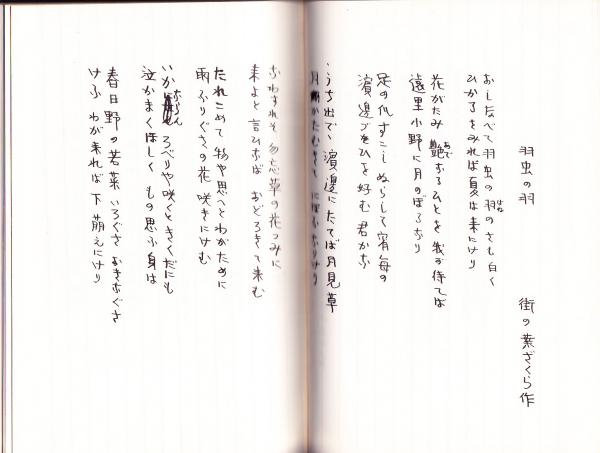 羽虫の羽
街の葉ざくら作
おしなべて羽虫の羽のさも白く
はね
ひかるをみれば夏は来にけり
花がたみ 艶なるひとを 我が待てば
あで
遠里小野に月のぼるなり
足の爪すこしぬらして宵毎の
濱邊づたひを好む君かな
うち出でゝ濱邊にたてば月見草
月かたむきて にほふなりけり
なわすれそ 勿忘草の花つみに
来よと言ひなば おどろきて来む
たれこめて 物や思へとわがために
雨ふりぐさの花咲きにけむ
いかならん ろべりや咲くときくだにも
泣かまくほしく もの思ふ身は
春日野の若菜 いろぐさ おきなぐさ
けふ わが来れば 下萌えにけり